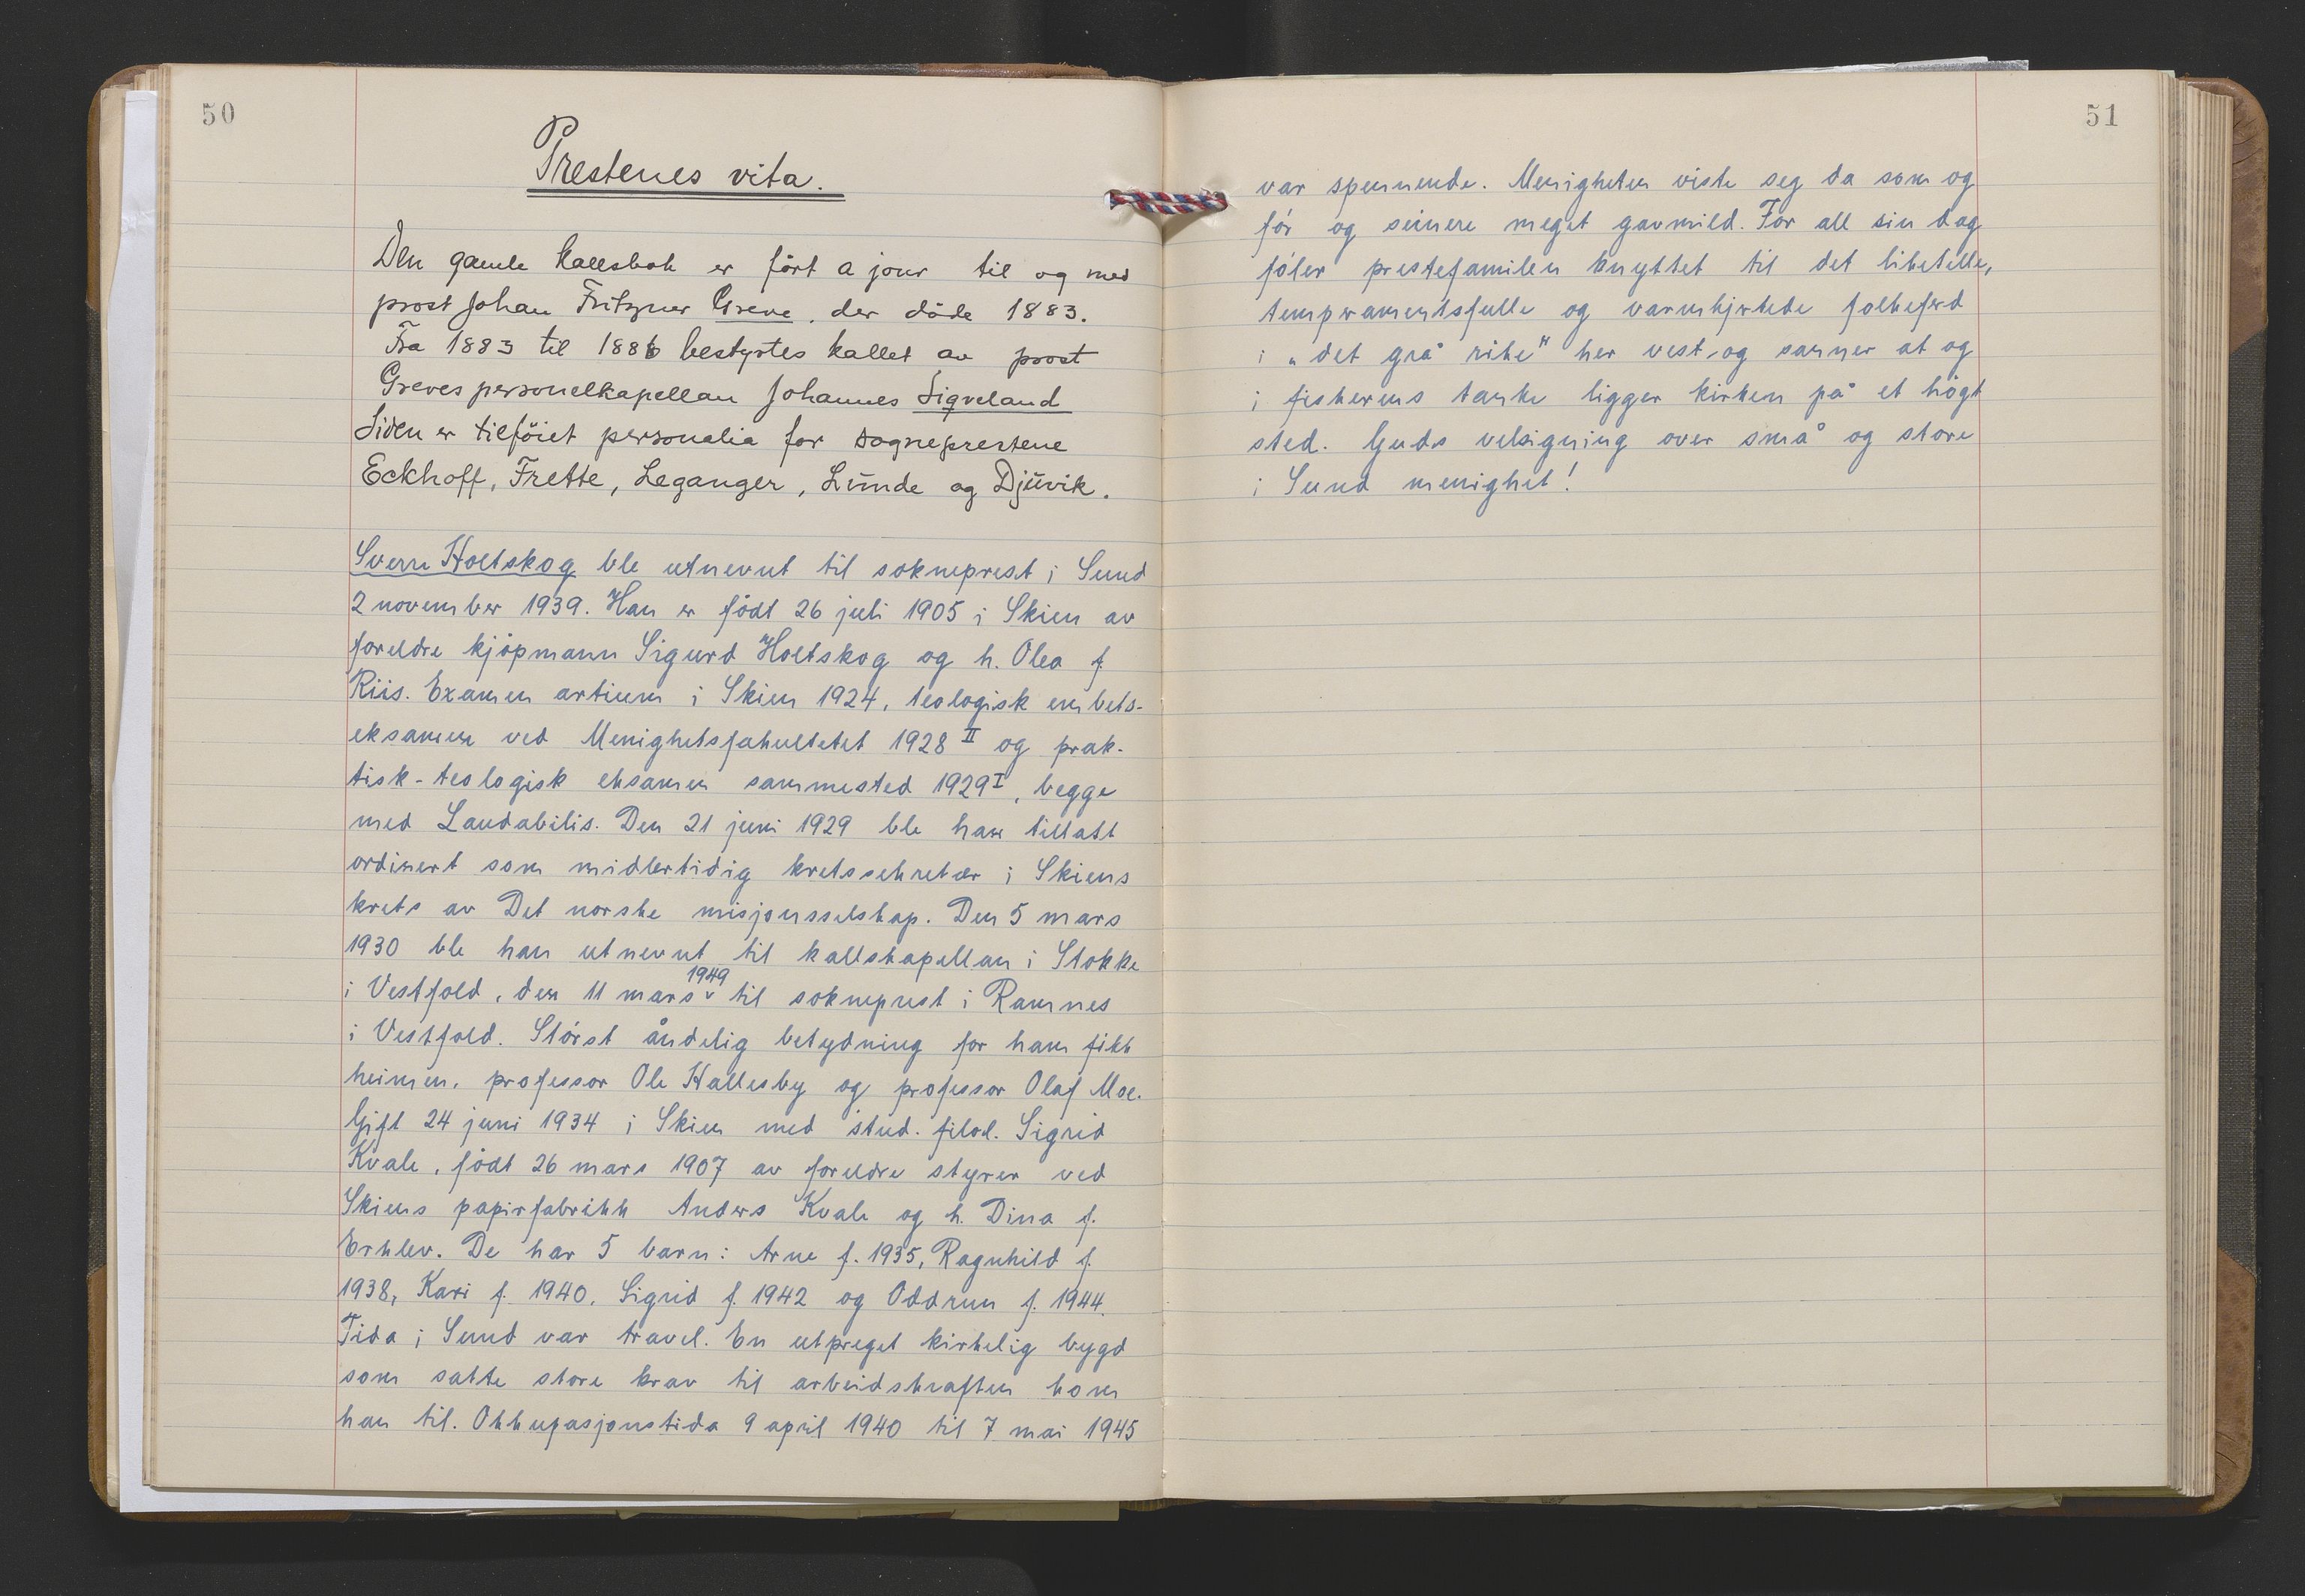 50
Prestenes vita.
Den gamle kallsbok er ført a jour til og med
prost Johan Fritzner Greve, der døde 1883.
Fra 1883 til 1886 bestyrtes kallet av prost
Greves personelkapellan Johannes Sigveland
Siden er tilføiet personalia for sogneprestene
Eckhoff, Frette, Leganger, Lunde og Djuvik.
Sverre Holtskog ble utnevnt til sokneprest i Sund
2 november 1939. Han er født 26 juli 1905 i Skien av
foreldre kjøpmann Sigurd Holtskog og h. Olea f.
Riis. Examen artium i Skien 1924, teologisk embets-
eksamen ved Menighetsfakultetet 1928 II og prak-
tisk-teologisk eksamen sammested 1929 I, begge
med Laudabilis. Den 21 juni 1929 ble han tillatt
ordinert som midlertidig kretssekretær i Skiens
krets av Det norske misjonsselskap. Den 5 mars
1930 ble han utnevnt til kallskapellan i Stokke
i Vestfold, den 11 mars 1949 til sokneprest i Ramnes
i Vestfold. Størst åndelig betydning for ham fikk
heimen, professor Ole Hallesby og professor Olaf Moe.
Gift 24 juni 1934 i Skien med stud. filol. Sigrid
Kvale, født 26 mars 1907 av foreldre styrer ved
Skiens papirfabrikk Anders Kvale og h. Dina f.
Erklev. De har 5 barn: Arne f. 1935, Ragnhild f.
1938, Kari f. 1940, Sigrid f. 1942 og Oddrun f. 1944.
Tida i Sund var travel. En utpreget kirkelig bygd
som satte store krav til arbeidskraften kom
han til. Okkupasjonstida 9 april 1940 til 7 mai 1945
51
var spennende. Menigheten viste seg da som og
før og seinere meget gavmild. For all sin dag
føler prestefamilen knyttet til det liketille,
temperamentsfulle og varmhjertede folkeferd
i "det grå rike" her vest, og sanner at og
i fiskerens tanke ligger kirken på et høgt
sted. Guds velsigning over små og store
i Sund menighet!